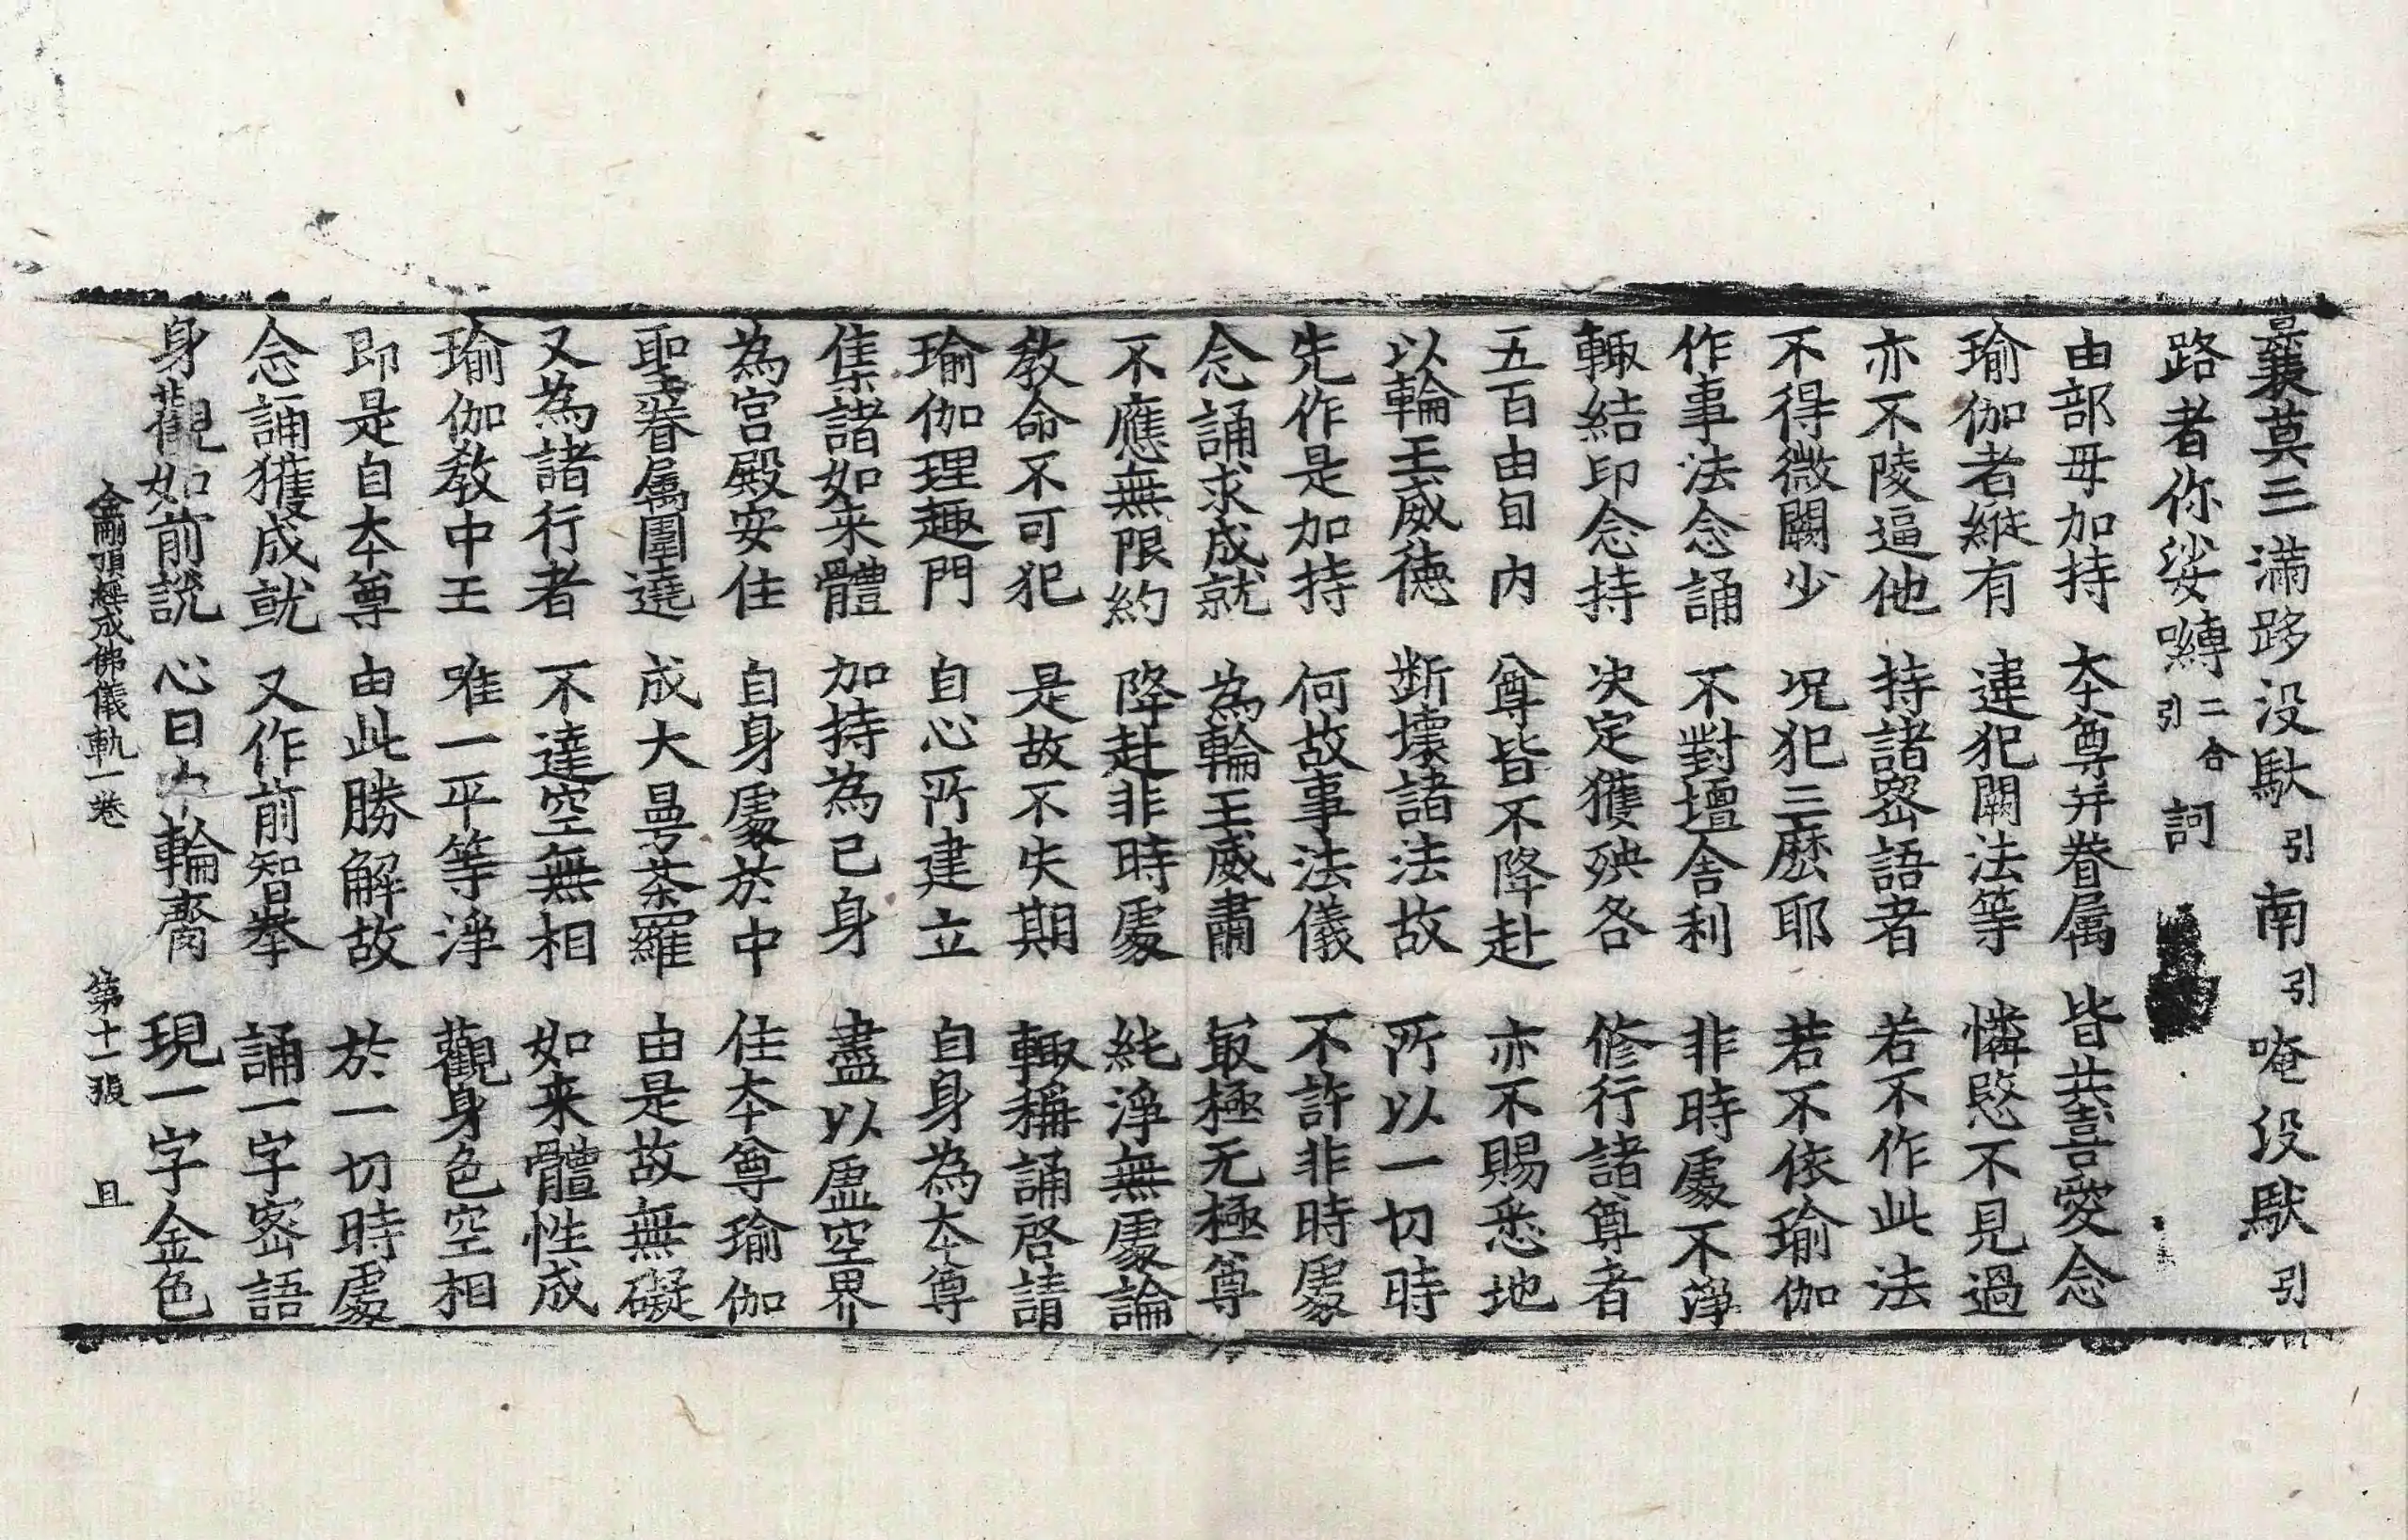 曩莫三滿跢没馱引南引唵没馱引
路者你娑嚩二合引訶
由部母加持 本尊并眷属 皆共喜愛念
瑜伽者縱有 違犯闕法等 憐愍不見過
亦不陵逼他 持諸密語者 若不作此法
不得微闕少 况犯三麼耶 若不依瑜伽
作事法念誦 不對壇舍利 非時處不淨
輙結印念持 決定獲殃咎 修行諸尊者
五百由旬内 尊皆不降赴 亦不賜悉地
以輪王威徳 断壞諸法故 所以一切時
先作是加持 何故事法儀 不許非時處
念誦求成就 為輪王威肅 㝡極无極尊
不應無限約 降赴非時處 純淨無處論
教命不可犯 是故不失期 輙稱誦啓請
瑜伽理趣門 自心所建立 自身為本尊
集諸如来體 加持為己身 盡以虚空界
為宫殿安住 自身處於中 住本尊瑜伽
聖眷屬圍遶 成大曼荼羅 由是故無礙
又為諸行者 不達空無相 如来體性成
瑜伽教中王 唯一平等淨 觀身色空相
即是自本尊 由此勝解故 於一切時處
念誦獲成就 又作前智拳 誦一字密語
身觀如前説 心日輪齎 現一字金色
金剛頂經成佛儀軌一卷 第十一張 且